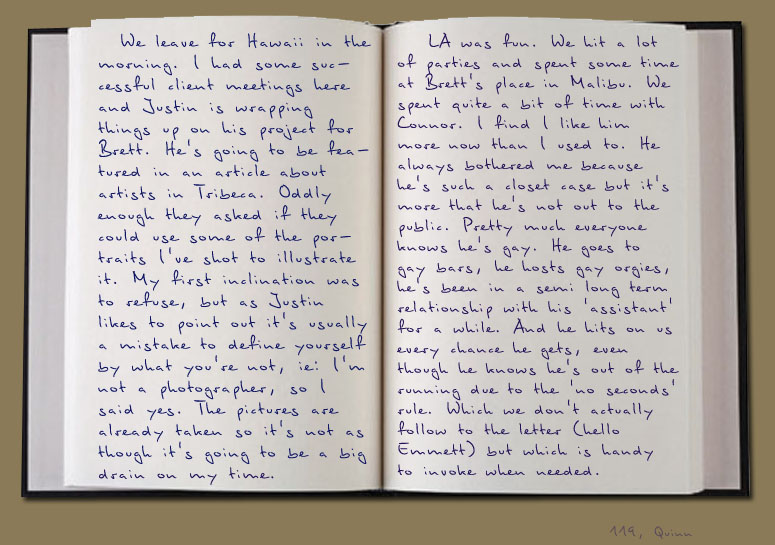 We leave for Hawaii in the
morning. I had some suc-
cessful client meetings here
and Justin is wrapping
things up on his project for
Brett. He's going to be fea-
tured in an article about
artists in Tribeca. Oddly
enough they asked if they
could use some of the por-
traits I've shot to illustrate
it. My first inclination was
to refuse, but as Justin
likes to point out it's usually
a mistake to define yourself
by what you're not, ie: I'm
not a photographer, so I
said yes. The pictures are
already taken so it's not as
though it's going to be a big
drain on my time.
LA was fun. We hit a lot
of parties and spent some time
at Brett's place in Malibu. We
spent quite a bit of time with
Connor. I find I like him
more now than I used to. He
always bothered me because
he's such a closet case but it's
more that he's not out to the
public. Pretty much everyone
knows he's gay. He goes to
gay bars, he hosts gay orgies,
he's been in a semi long term
relationship with his 'assistant'
for a while. And he hits on us
every chance he gets, even
though he knows he's out of the
running due to the 'no seconds'
rule. Which we don't actually
follow to the letter (hello
Emmett) but which is handy
to invoke when needed.
119, Quinn